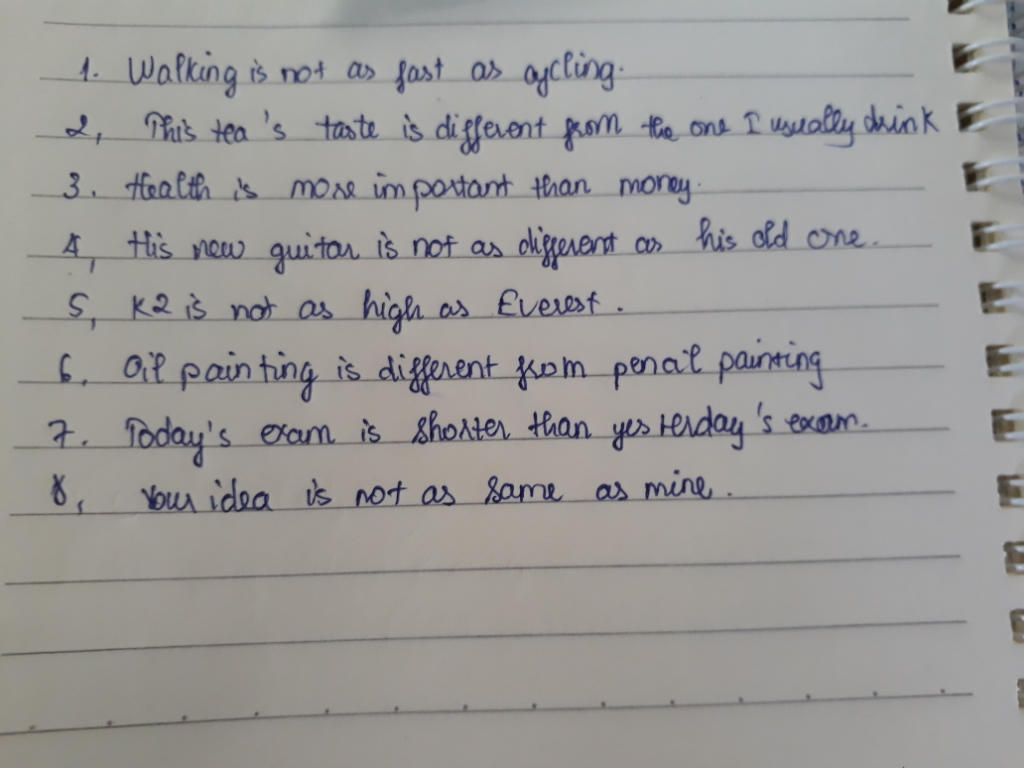 1. Walking is not as fast as cycling.
2, This tea's taste is different from the one I usually drink
3. Health is more important than money.
4, His new guitar is not as different as his old one.
5, K2 is not as high as Everest.
6. Oil painting is different from pencil painting
7. Today's exam is shorter than yesterday's exam.
8, Your idea is not as same as mine.